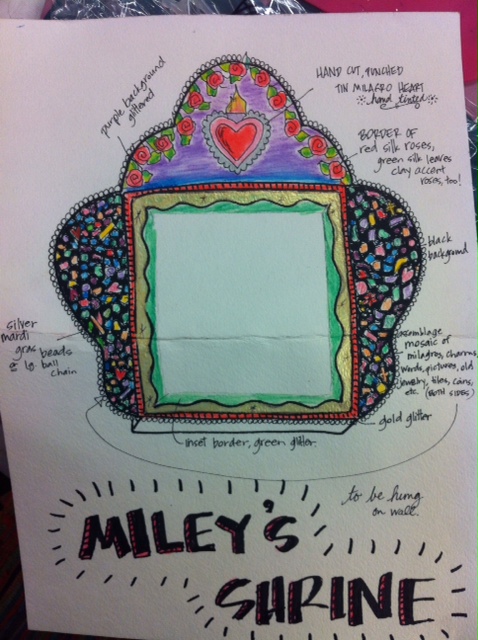 purple background
glittered
HAND CUT, PUNCHED
TIN MILAGRO HEART
hand tinted
BORDER OF
red silk roses,
green silk leaves
clay accent
roses, too!
black
background
silver
mardi
gras beads
& lg. ball
chain
assemblage
mosaic of
milagros, charms,
words, pictures, old
jewelry, tiles, coins,
etc. (BOTH SIDES)
gold glitter
inset border, green glitter.
to be hung
on wall.
MILEY'S
SHRINE